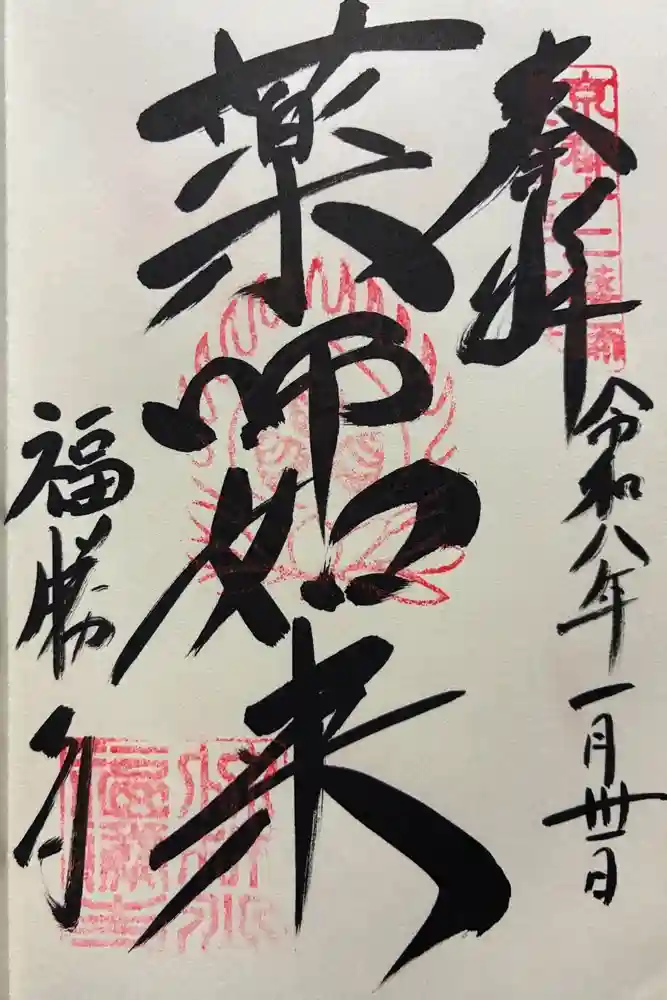 奉拝
令和八年一月卅一日
薬師如来
福勝寺